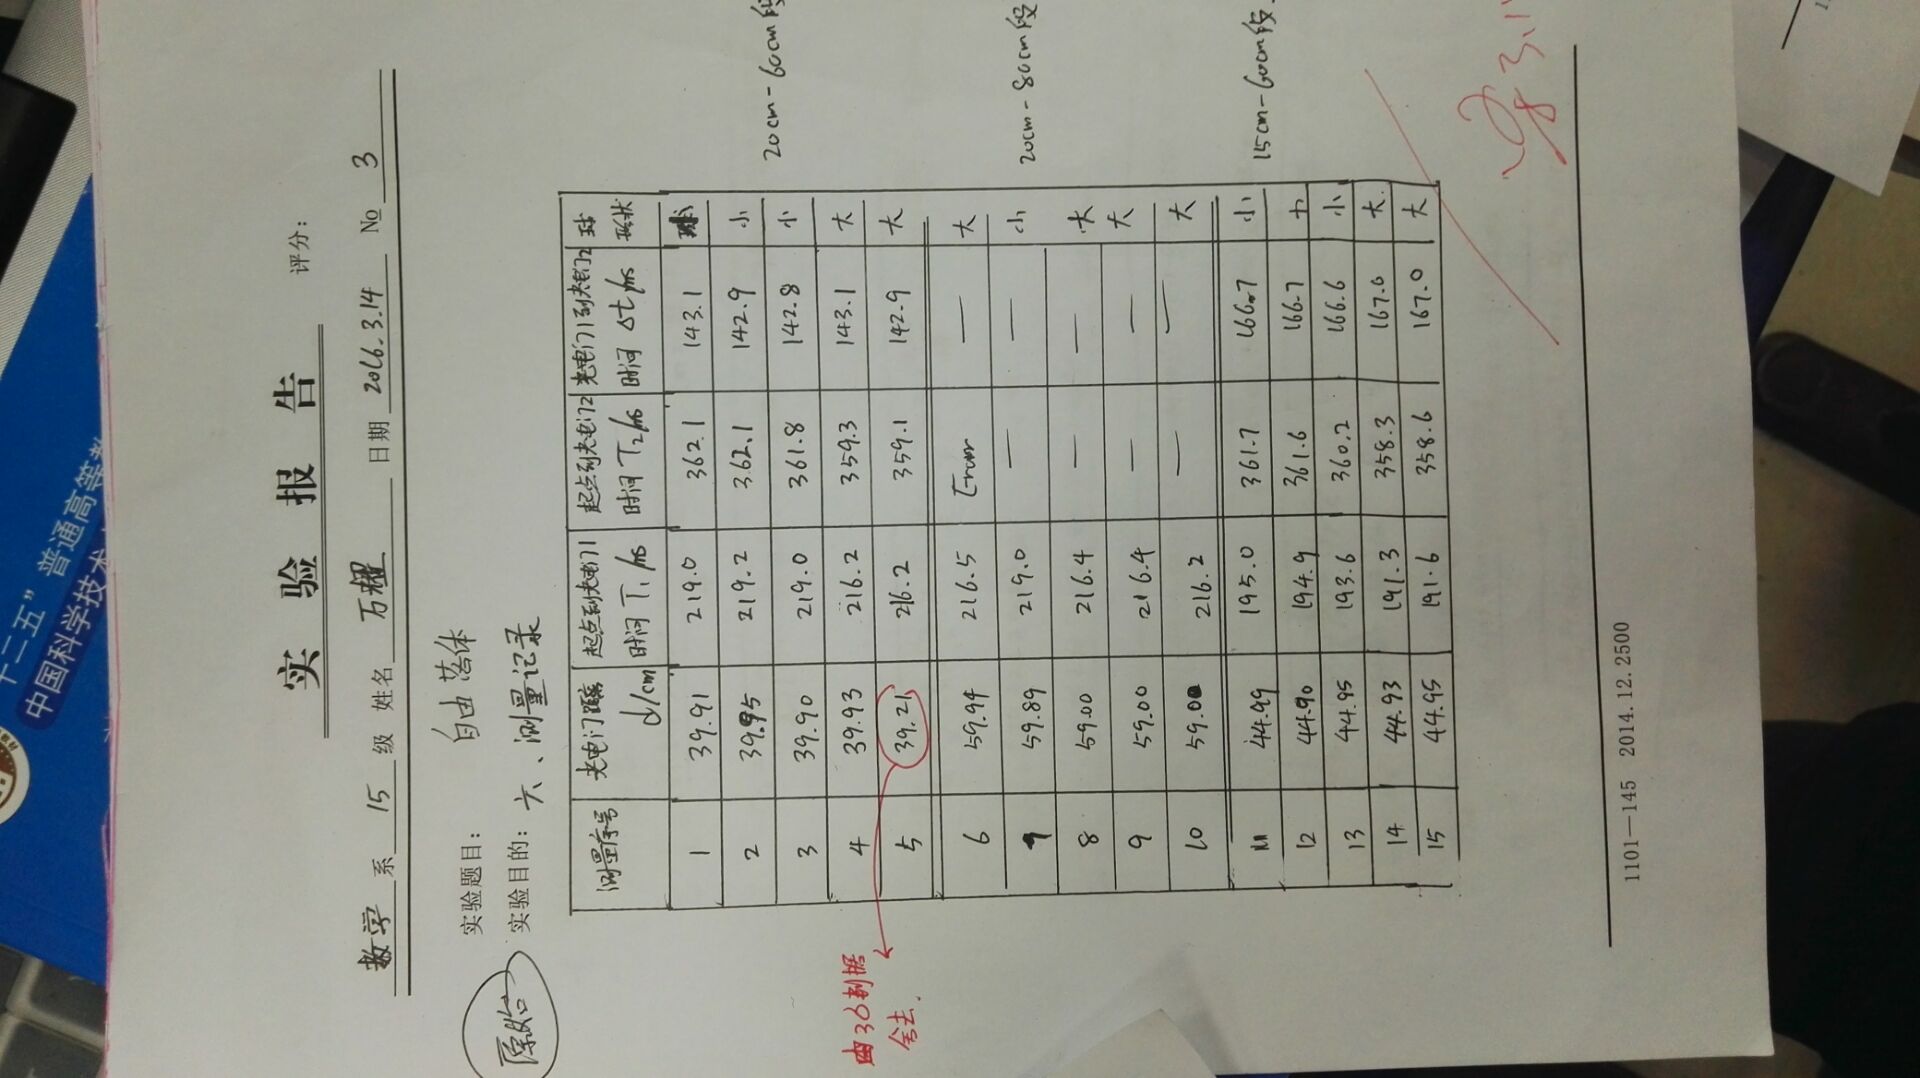 实 验 报 告
评分：
数学 系 15 级 姓名 万耀 日期 2016.3.14 № 3
实验题目： 自由落体
实验目的： 六、测量记录
原始
测量序号 光电门距离 d/cm 起点到光电门1时间 T₁/ms 起点到光电门2时间 T₂/ms 光电门1到光电门2时间 Δt/ms 球形状
1 39.91 219.0 362.1 143.1
2 39.95 219.2 362.1 142.9 小
3 39.90 219.0 361.8 142.8 小
4 39.93 216.2 359.3 143.1 大
5 39.21 216.2 359.1 142.9 大
6 59.94 216.5 Error — 大
7 59.89 219.0 — — 小
8 59.00 216.4 — — 大
9 59.00 216.4 — — 大
10 59.00 216.2 — — 大
11 44.99 195.0 361.7 166.7 小
12 44.90 194.9 361.6 166.7 小
13 44.95 193.6 360.2 166.6 小
14 44.93 191.3 358.3 167.0 大
15 44.95 191.6 358.6 167.0 大
20cm-60cm段
20cm-80cm段
15cm-60cm段
由3δ判据
舍去.
1101—145 2014.12.2500
十二五”普通高等
中国科学技术